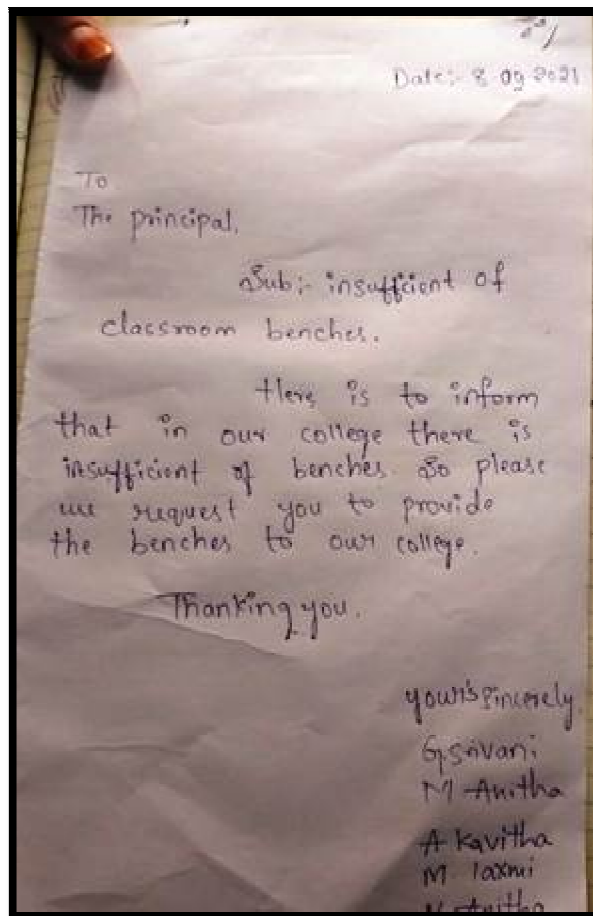 Date:- 8 09 2021
To
The principal,
Sub:- insufficient of
classroom benches.
Here is to inform
that in our college there is
insufficient of benches. So please
we request you to provide
the benches to our college.
Thanking you.
your's sincerely
G. Srivani
M Anitha
A Kavitha
M laxmi
Anitha